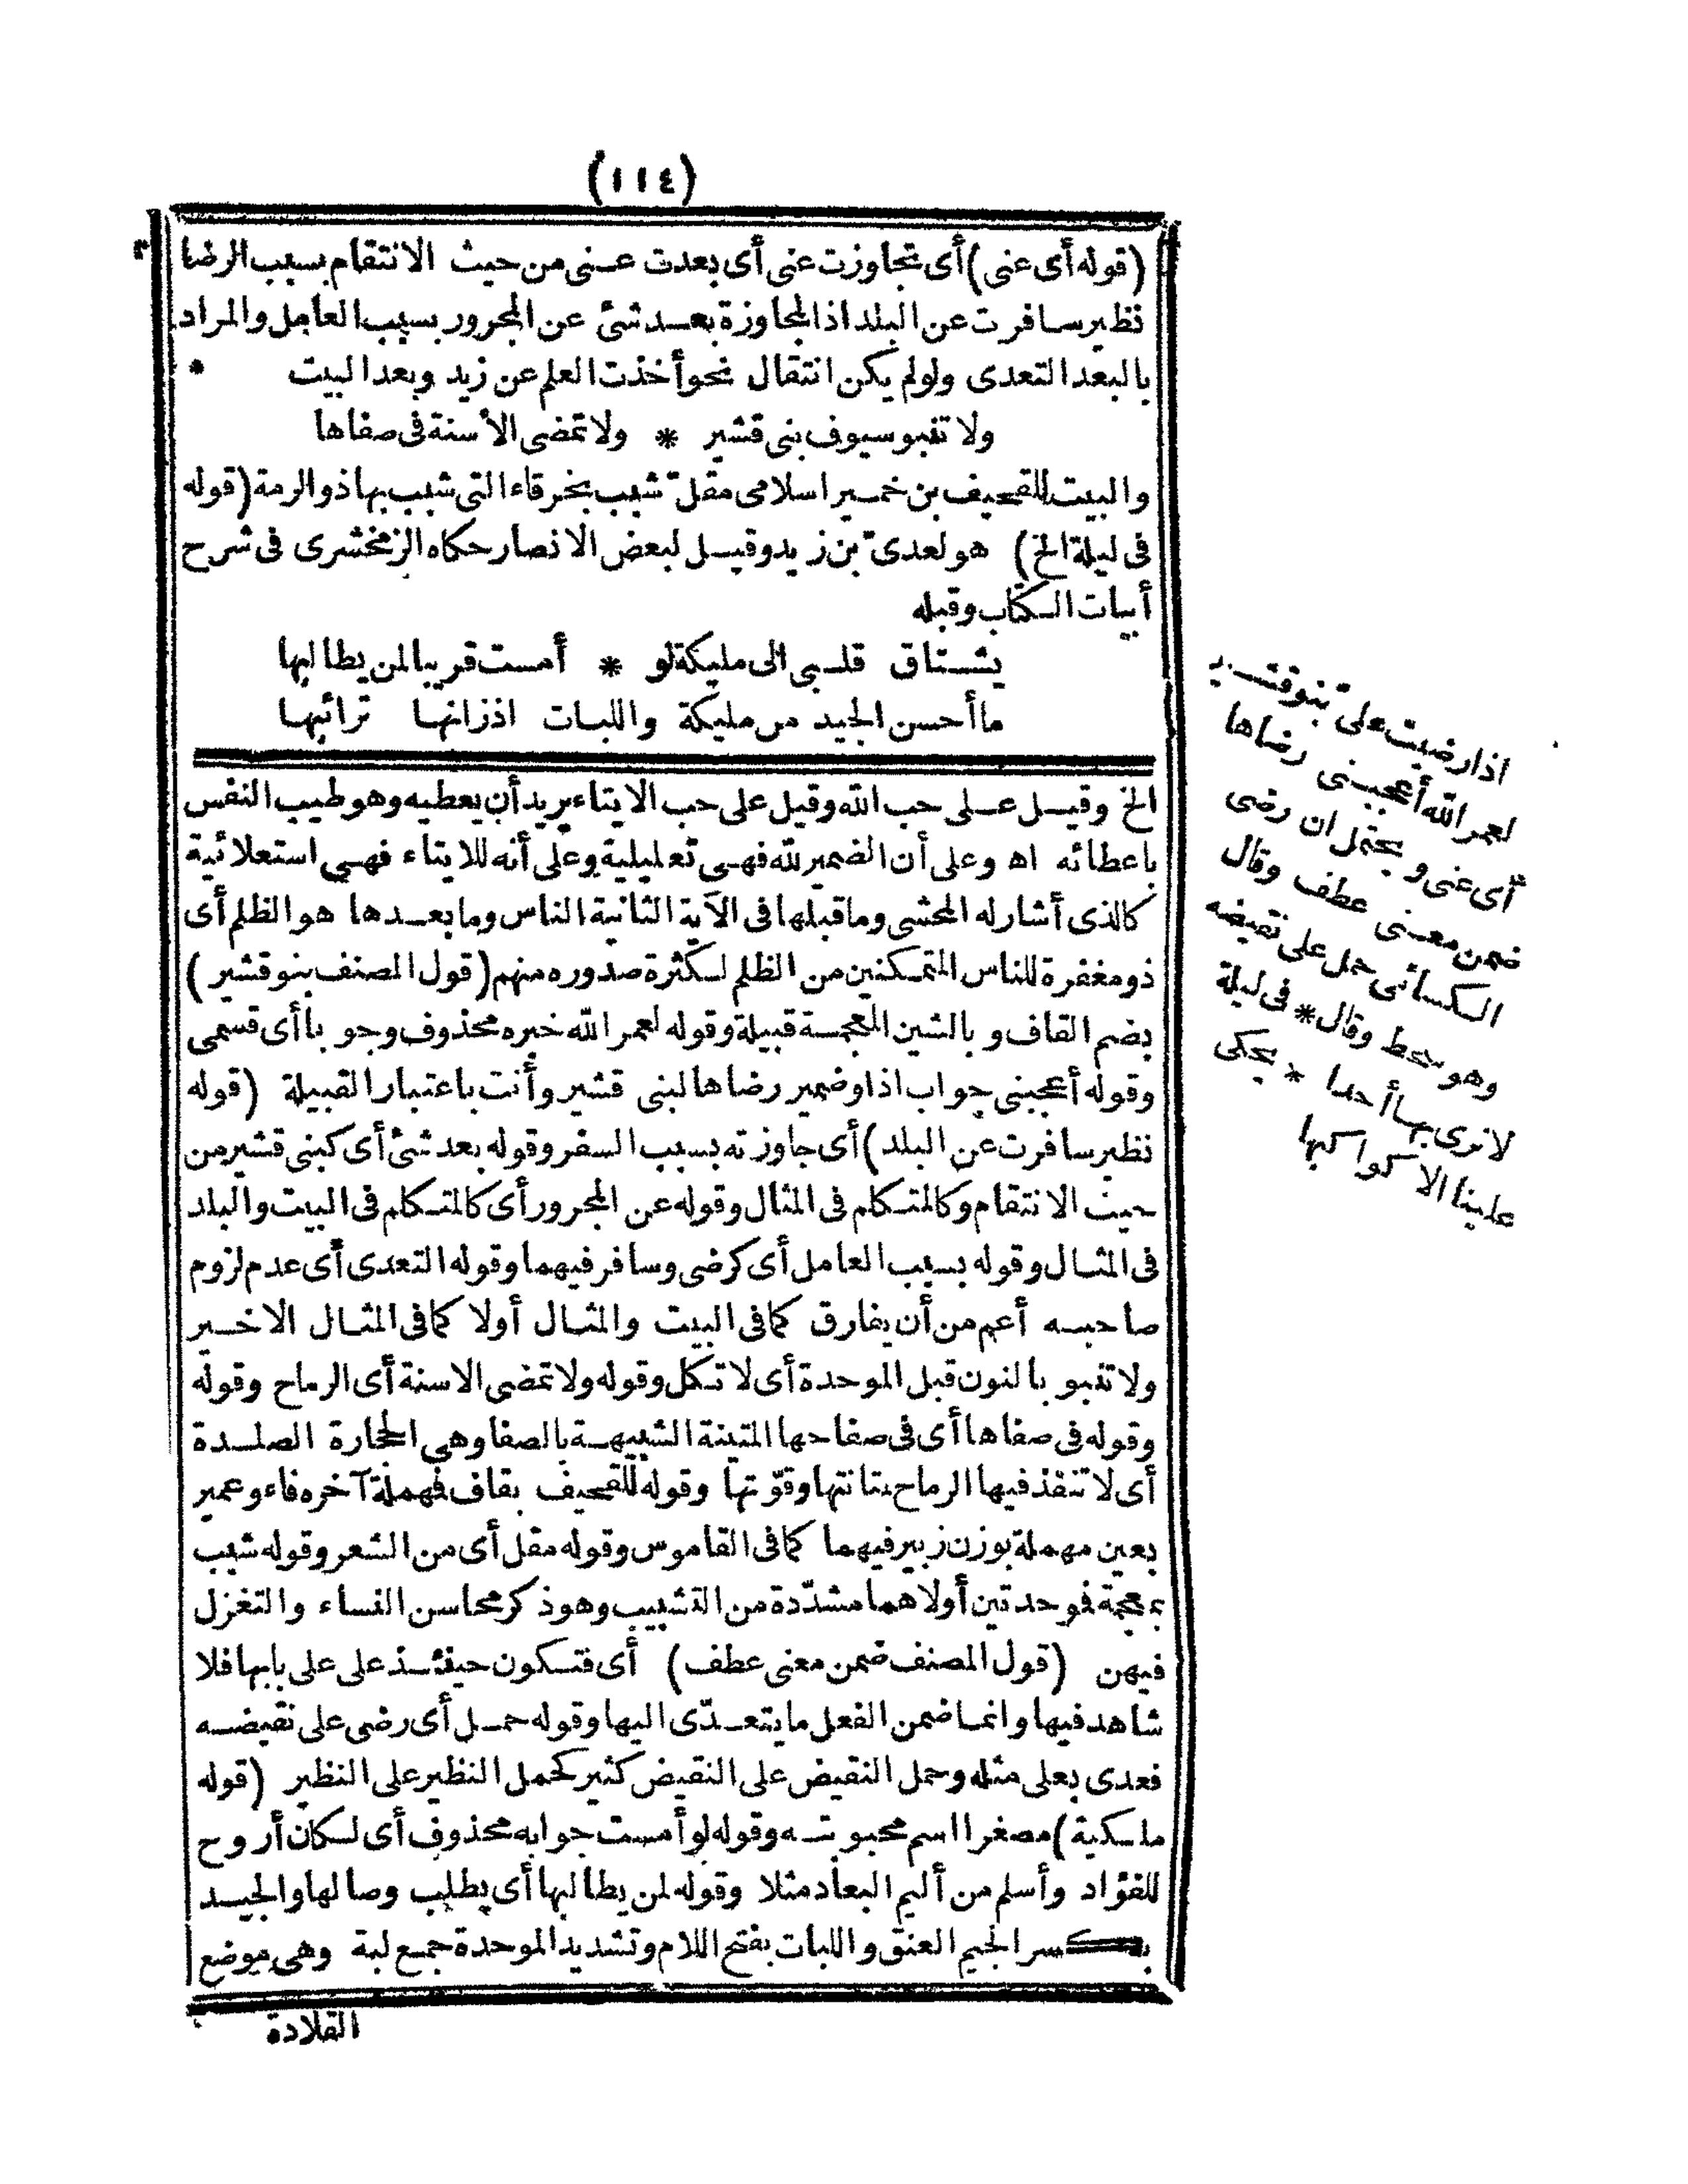 (١١٤)
(قوله أى عنى) أى تجاوزت عنى أى بعدت عنى من حيث الانتقام بسبب الرضا
نظير سافرت عن البلد اذ المجاوزة بعد شئ عن المجرور بسبب العامل والمراد
بالبعد التعدى ولو لم يكن انتقال نحو أخذت العلم عن زيد وبعد البيت
ولا تنبو سيوف بنى قشير * ولا تمضى الأسنة فى صفاها
والبيت للقحيف بن خمير اسلامى مقلّ شبب بخرقاء التى شبب بها ذو الرمة (قوله
فى ليلة الخ) هو لعدىّ بن زيد وقيل لبعض الانصار حكاه الزمخشرى فى شرح
أبيات الكتاب وقبله
يشتاق قلبى الى مليكة لو * أمست قريبا لمن يطالبها
ما أحسن الجيد من مليكة واللبات اذ زانها ترائبها
الخ وقيل على حب الله وقيل على حب الايتاء يريد أن يعطيه وهو طيب النفس
باعطائه اه وعلى أن الضمير لله فهى تعليلية وعلى أنه للايتاء فهى استعلائية
كالذى أشار له المحشى وما قبلها فى الآية الثانية الناس وما بعدها هو الظلم أى
ذو مغفرة للناس المتمكنين من الظلم لكثرة صدوره منهم (قول المصنف بنو قشير)
بضم القاف وبالشين المعجمة قبيلة وقوله لعمر الله خبره محذوف وجوبا أى قسمى
وقوله أعجبنى جواب اذا وضمير رضاها لبنى قشير وأنت باعتبار القبيلة (قوله
نظير سافرت عن البلد) أى جاوزته بسبب السفر وقوله بعد شئ أى كبنى قشير من
حيث الانتقام وكالمتكلم فى المثال وقوله عن المجرور أى كالمتكلم فى البيت والبلد
فى المثال وقوله بسبب العامل أى كرضى وسافر فيهما وقوله التعدى أى عدم لزوم
صاحبه أعم من أن يفارق كما فى البيت والمثال أولا كما فى المثال الاخير
ولا تنبو بالنون قبل الموحدة أى لا تكل وقوله ولا تمضى الاسنة أى الرماح وقوله
وقوله فى صفاها أى فى صفاحها المتينة الشبيهة بالصفا وهى الحجارة الصلدة
أى لا تنفذ فيها الرماح بمتانتها وقوّتها وقوله للقحيف بقاف فمهملة آخره فاء وعمير
بعين مهملة بوزن زبير فيهما كما فى القاموس وقوله مقل أى من الشعر وقوله شبب
بمعجمة فموحدتين أولاهما مشدّدة من التشبيب وهو ذكر محاسن النساء والتغزل
فيهن (قول المصنف ضمن معنى عطف) أى فتكون حينئذ على على بابها فلا
شاهد فيها وانما ضمن الفعل ما يتعدّى اليها وقوله حمل أى رضى على نقيضه
فعدى بعلى مثله وحمل النقيض على النقيض كثير كحمل النظير على النظير (قوله
ملسكية) مصغرا اسم محبوبته وقوله لو أمست جوابه محذوف أى لكان أروح
للفؤاد وأسلم من أليم البعاد مثلا وقوله لمن يطالبها أى يطلب وصالها والجيد
بكسر الجيم العنق واللبات بفتح اللام وتشديد الموحدة جمع لبة وهى موضع
القلادة
اذا رضيت علىّ بنو قشير
لعمر الله أعجبنى رضاها
أى عنى ويحتمل ان رضى
ضمن معنى عطف وقال
الكسائى حمل على نقيضه
وهو سخط وقال * فى ليلة
لا نرى بها أحدا * يحكى
علينا الا كواكبها